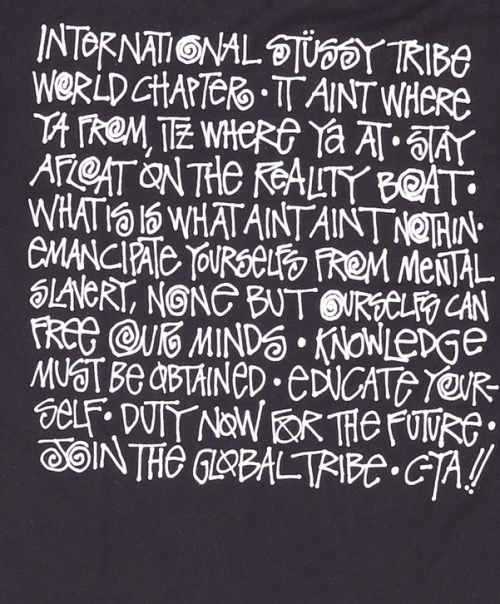 INTERNATIONAL STÜSSY TRIBE
WORLD CHAPTER · IT AINT WHERE
YA FROM, ITZ WHERE Ya AT · STAY
AFLOAT ON THE REALITY BOAT ·
WHAT IS IS WHAT AINT AINT NOTHIN·
EMANCIPATE YOURSELFS FROM MENTAL
SLAVERY, NONE BUT OURSELFS CAN
FREE OUR MINDS · KNOWLEDGE
MUST BE OBTAINED · EDUCATE YOUR-
SELF · DUTY NOW FOR THE FUTURE ·
JOIN THE GLOBAL TRIBE · C-YA!!